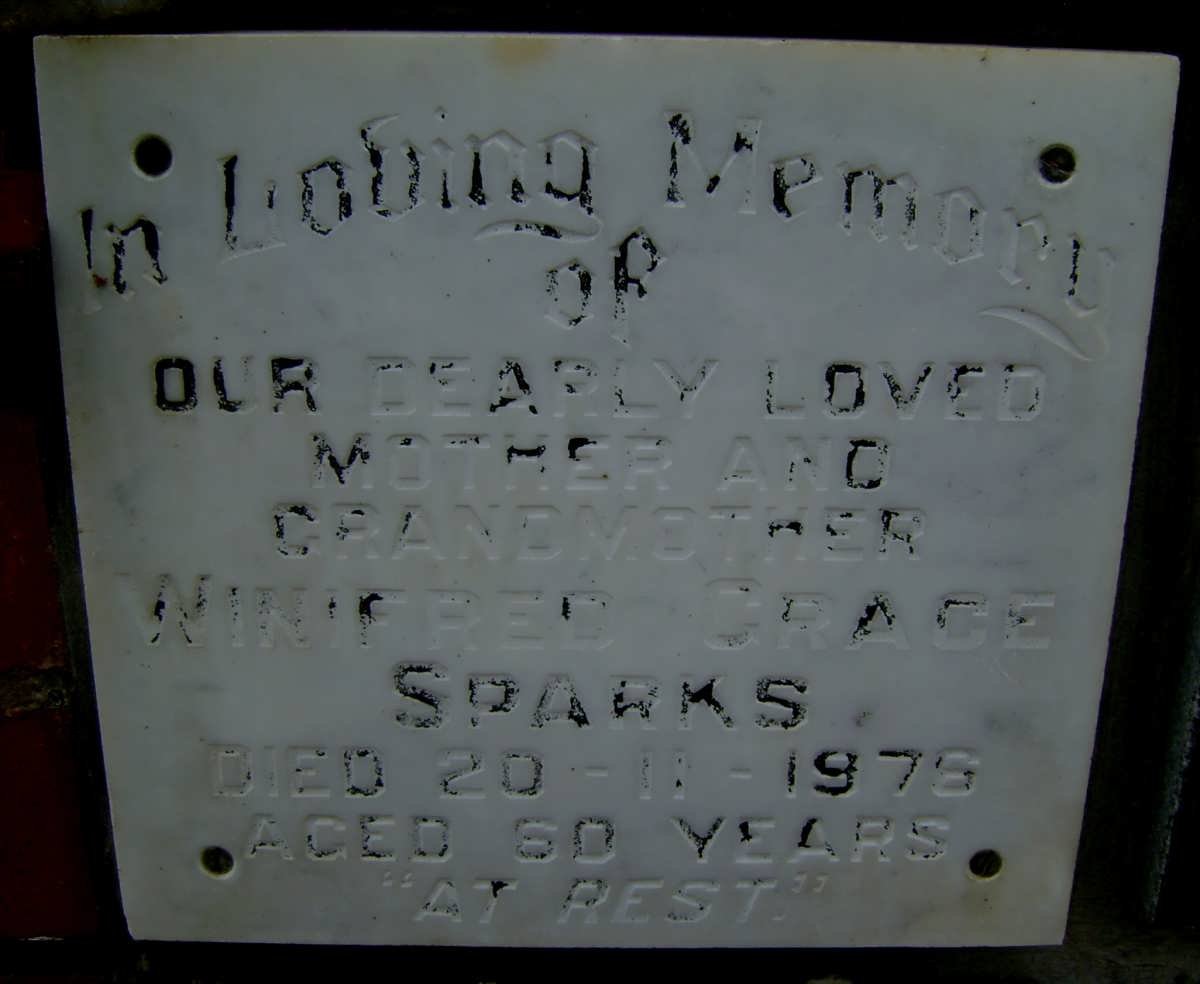 In Loving Memory
of
OUR DEARLY LOVED
MOTHER AND
GRANDMOTHER
WINIFRED GRACE
SPARKS
DIED 20-11-1976
AGED 60 YEARS
"AT REST."